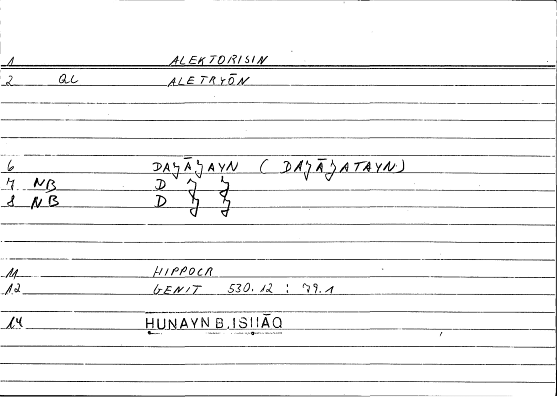 1 ALEKTORISIN
2 QL ALETRYŌN
6 DAJĀJAYN ( DAJĀJATAYN)
7 NB D J J
8 NB D J J
11 HIPPOCR
12 GENIT 530.12 : 79.1
14 HUNAYN B. ISHĀQ